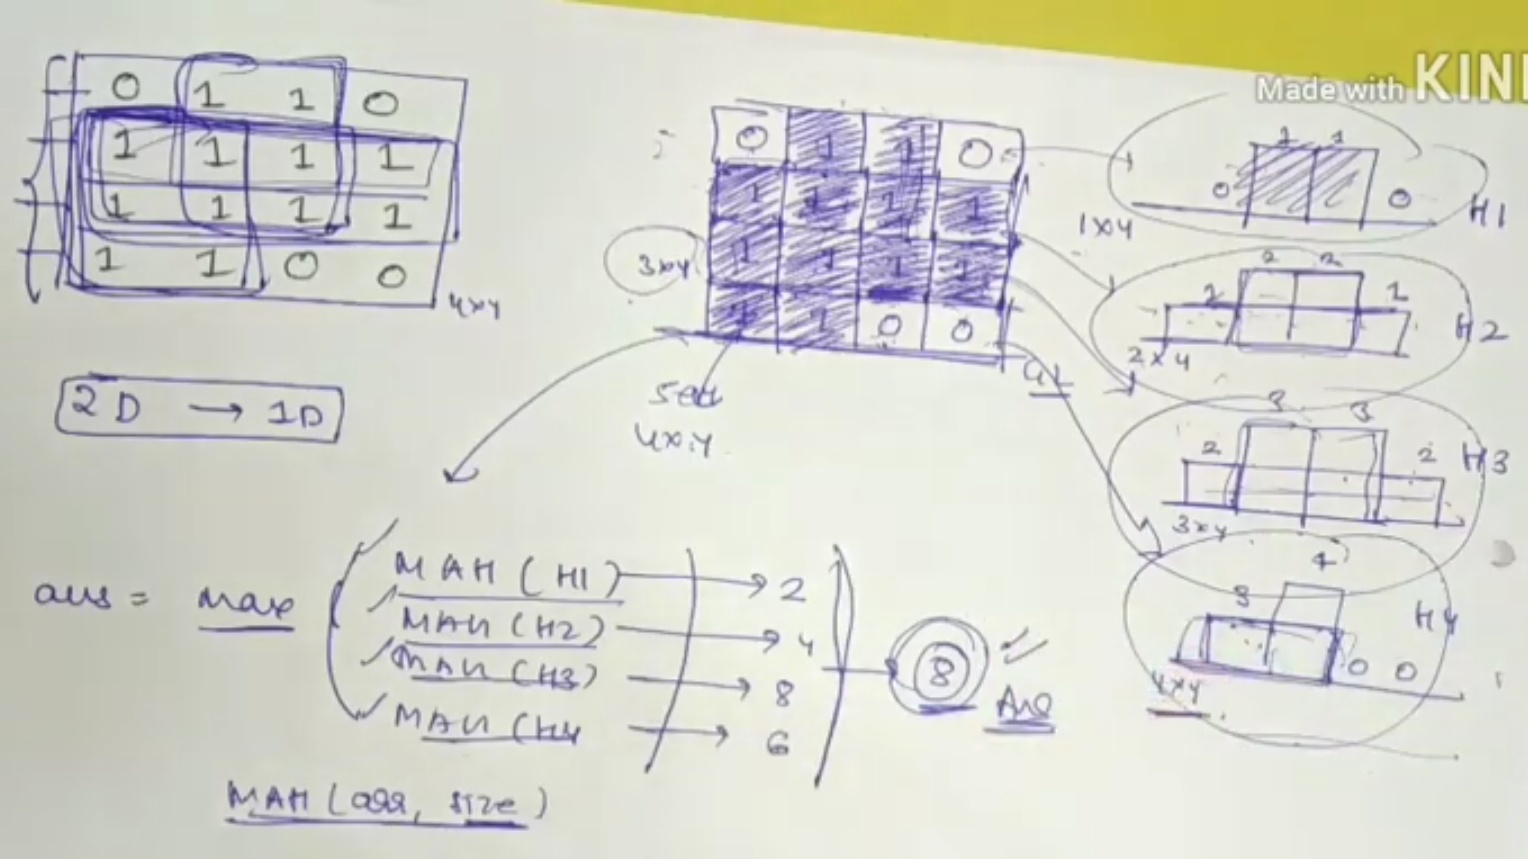 Made with KIN
0 1 1 0
1 1 1 1
1 1 1 1
1 1 0 0
4x4
2D → 1D
0 1 1 0
1 1 1 1
1 1 1 1
1 1 0 0
3x4
4x4
0 1 1 0
1x4
H1
1 2 2 1
2x4
H2
2 3 3 2
3x4
H3
3 4 0 0
4x4
H4
ans = max
MAH (H1) → 2
MAH (H2) → 4
MAH (H3) → 8
MAH (H4 → 6
8
Ans
MAH (arr, size)